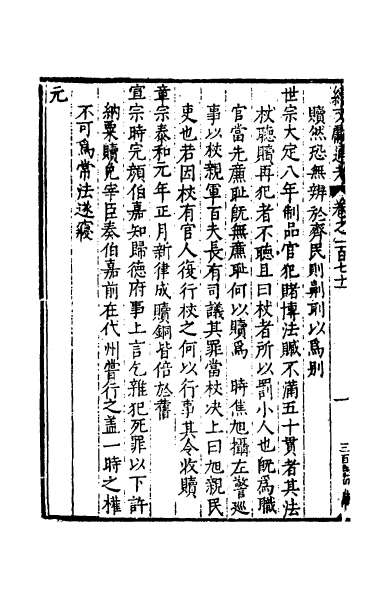 贖然恐無辨於齊民則劓刑以爲别
世宗大定八年制品官犯賭博法贓不滿五十貫者其法
杖聽贖再犯者不聽且曰杖者所以罰小人也旣爲職
官當先亷恥旣無亷恥何以贖爲 時焦旭攝左警廵
事以杖親軍百夫長有司議其罪當杖决上曰旭親民
吏也若因杖有官人復行杖之何以行事其令收贖
章宗泰和元年正月新律成贖銅皆倍於舊
宣宗時完顔伯嘉知歸德府事上言乞雜犯死罪以下許
納粟贖免宰臣奏伯嘉前在代州嘗行之蓋一時之權
不可爲常法遂寢
元